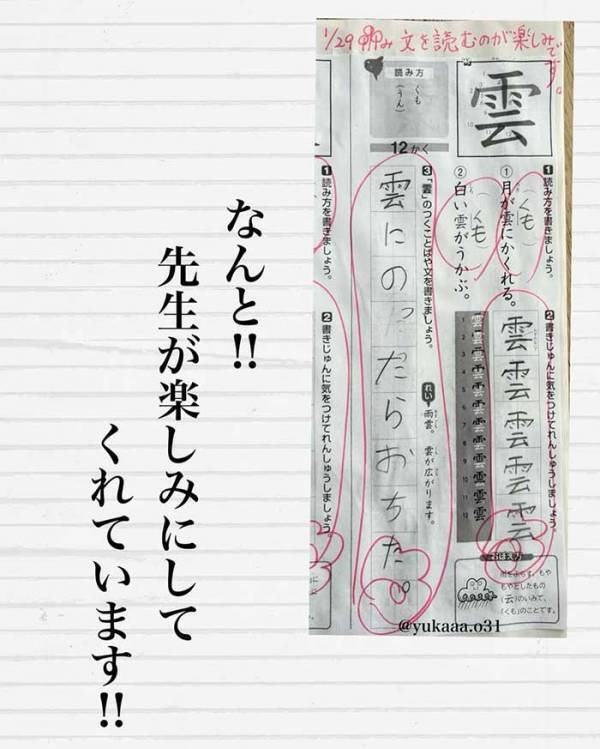 1/29 文を読むのが楽しみです。
雲
読み方
くも
(うん)
12かく
1 読み方を書きましょう。
① 月が雲にかくれる。
(くも)
② 白い雲がうかぶ。
(くも)
2 書きじゅんに気をつけてれんしゅうしましょう。
雲雲雲雲雲
1 2 3 4 5 6 7 8 9 10 11 12
3 「雲」のつくことばや文を書きましょう。
れい 雨雲。 雲が広がります。
雲にのったらおちた。
おぼえ方
雨をふらす、もや
もやとしたもの
(云)のいみで、
「くも」のことです。
1 読み方を書きましょう。
2 書きじゅんに気をつけてれんしゅうしましょう
@yukaaa.o31
なんと!!
先生が楽しみにして
くれています!!